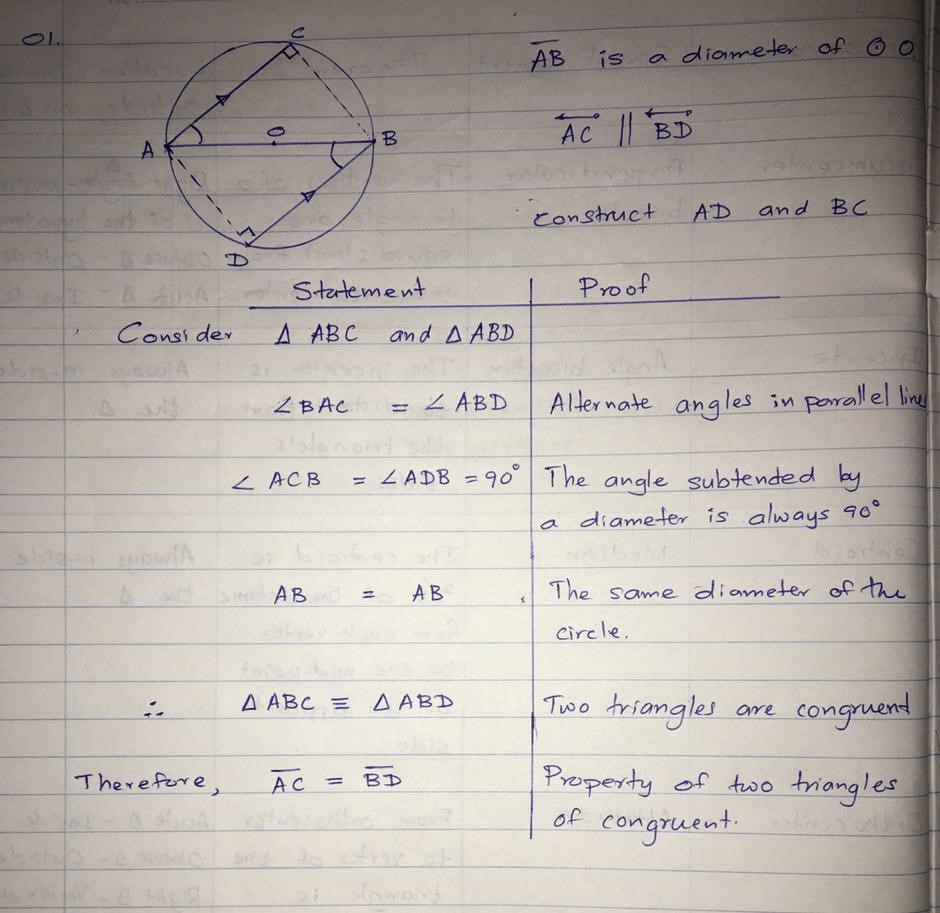 01.
C
A
O
B
D
AB is a diameter of ⊙ O.
AC || BD
construct AD and BC
Statement | Proof
Consider Δ ABC and Δ ABD
∠BAC = ∠ABD | Alternate angles in parallel line
∠ACB = ∠ADB = 90° | The angle subtended by
a diameter is always 90°
AB = AB | The same diameter of the
circle.
∴ Δ ABC ≡ Δ ABD | Two triangles are congruent
Therefore, AC = BD | Property of two triangles
of congruent.